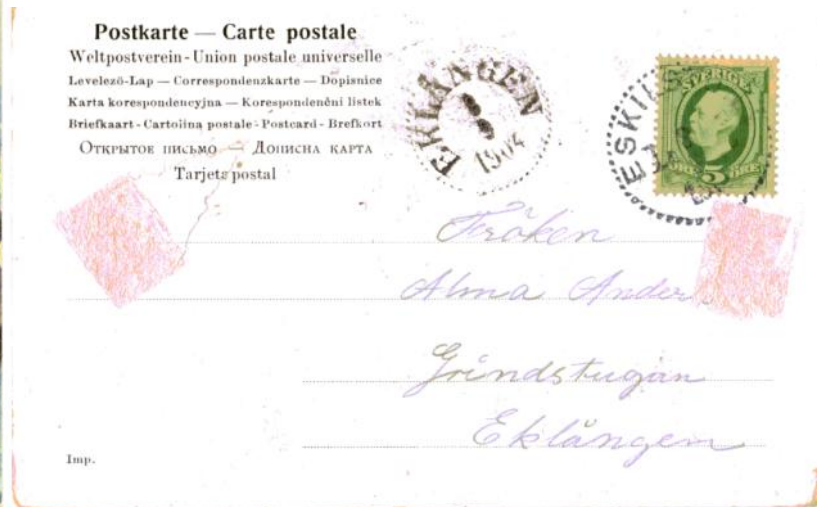 Postkarte — Carte postale
Weltpostverein - Union postale universelle
Levelező-Lap — Correspondenzkarte — Dopisnice
Karta korespondencyjna — Korespondenční listek
Briefkaart - Cartolina postale - Postcard - Brefkort
Открытое письмо — Дописна карта
Tarjeta postal
EKLÅNGEN
1904
ESKILS
SVERIGE
ÖRE 5 ÖRE
Fröken
Alma Ander
Grindstugan
Eklången
Imp.